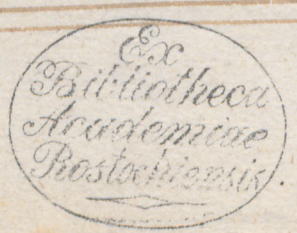 Ex
Bibliotheca
Academiae
Rostochiensis.